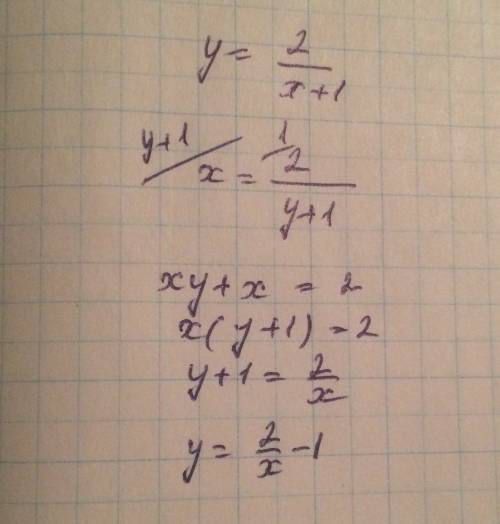 y = 2/(x+1)
y+1/ x = 1/ 2/(y+1)
xy + x = 2
x(y+1) = 2
y+1 = 2/x
y = 2/x - 1